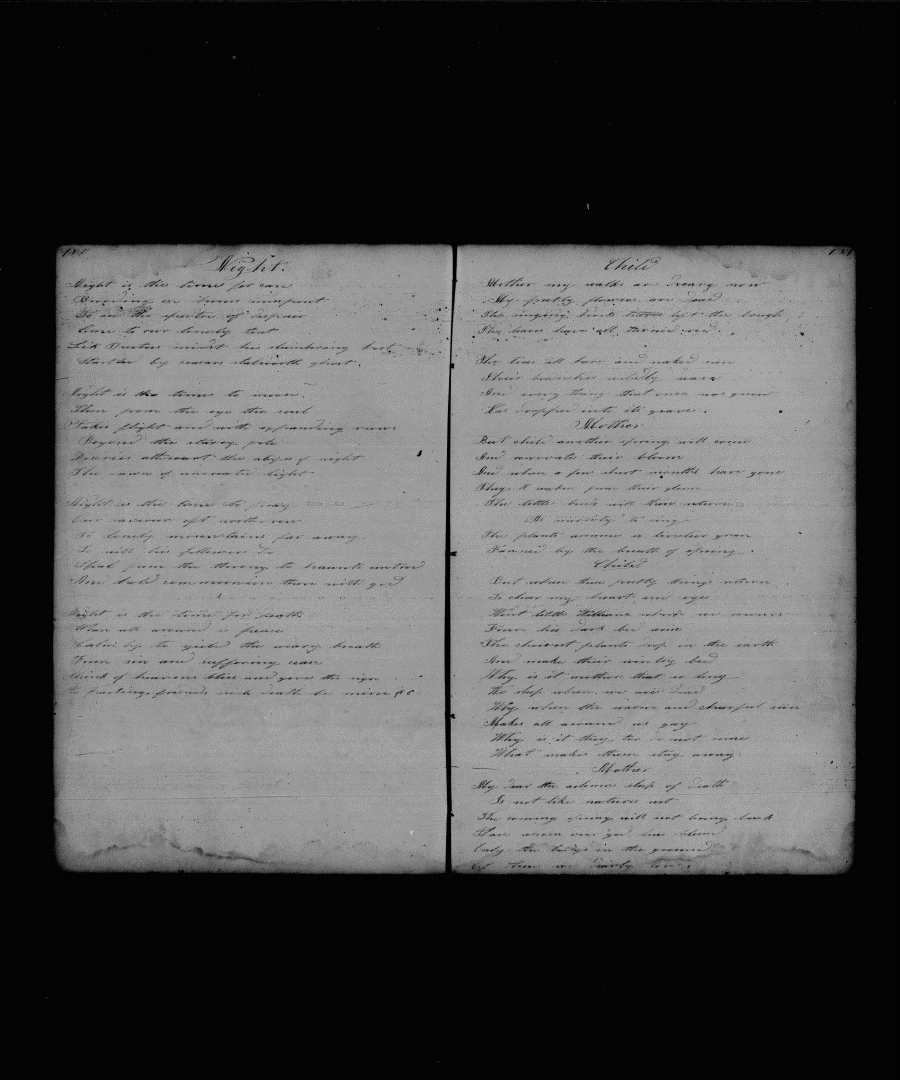 Night.
Night is the time for care
Brooding on hours mispent
To see the spectre of despair
Come to our lonely tent
Like Brutus midst his slumbering host
Startled by ceasars stalworth ghost.
Night is the time to muse.
Then from the eye the soul
Takes flight and with expanding views
Beyond the starry pole
Descries athwart the abyss of night
The dawn of uncreated light
Night is the time to pray
Our saviour oft withdrew
To lonely mountains far away
So will his followers do
Steal from the throng to haunts untrod
And hold communion there with god
Night is the time for death
When all around is peace
Calmly to yield the weary breath
From sin and suffering cease
think of heavens bliss and give the sign
to parting friends such death be mine &c
151
Child
Mother my walks are dreary now
My pretty flowers are dead
The singing birds have left the bough
The leaves have all turned red.
The trees all bare and naked
Their branches wildly wave
And every thing that once was
Has dropped into its grave.
Mother
But child another spring will come
And renovate their bloom
And when a few short months have gone
They'll waken from their gloom
The little birds will then return
to sing
The plants assume a livelier green
Fanned by the breath of spring.
Child
But when these pretty things return
To cheer my heart and eyes
Wont little William
From his dark bed arise
The choicest plants in the earth
And make their wintry bed
Why is it mother that so long
We sleep when we are dead
Why when the warm and cheerful sun
Makes all around us gay
Why is it they too do not come
What makes them stay away
Mother
My dear the solemn sleep of death
Is not like natures rest
The coming spring will not bring back
Only the in the ground